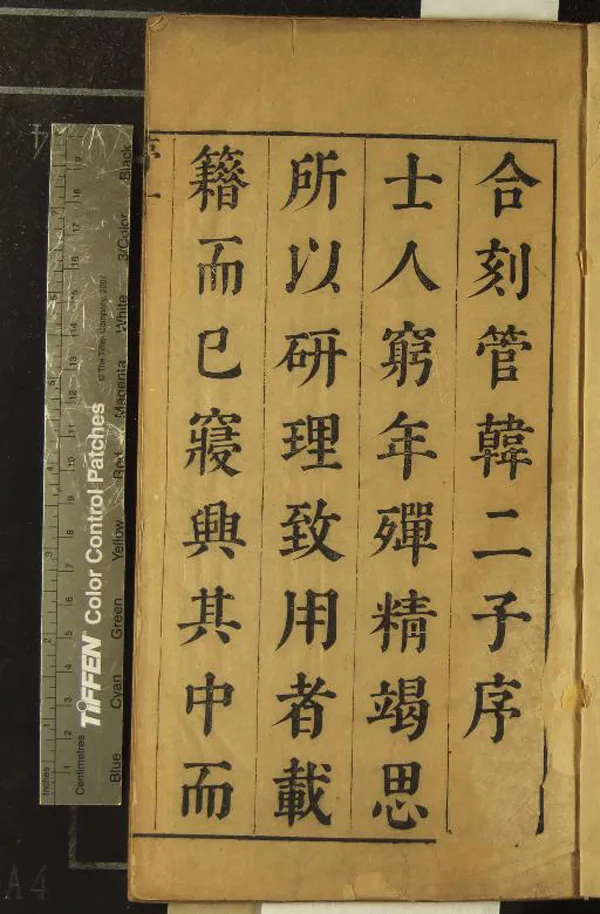 合刻管韓二子序
士人窮年殫精竭思
所以研理致用者載
籍而已寢興其中而
Inches
Centimetres
TIFFEN Color Control Patches
© The Tiffen Company, 2007
Blue
Cyan
Green
Yellow
Red
Magenta
White
3/Color
Black
A4